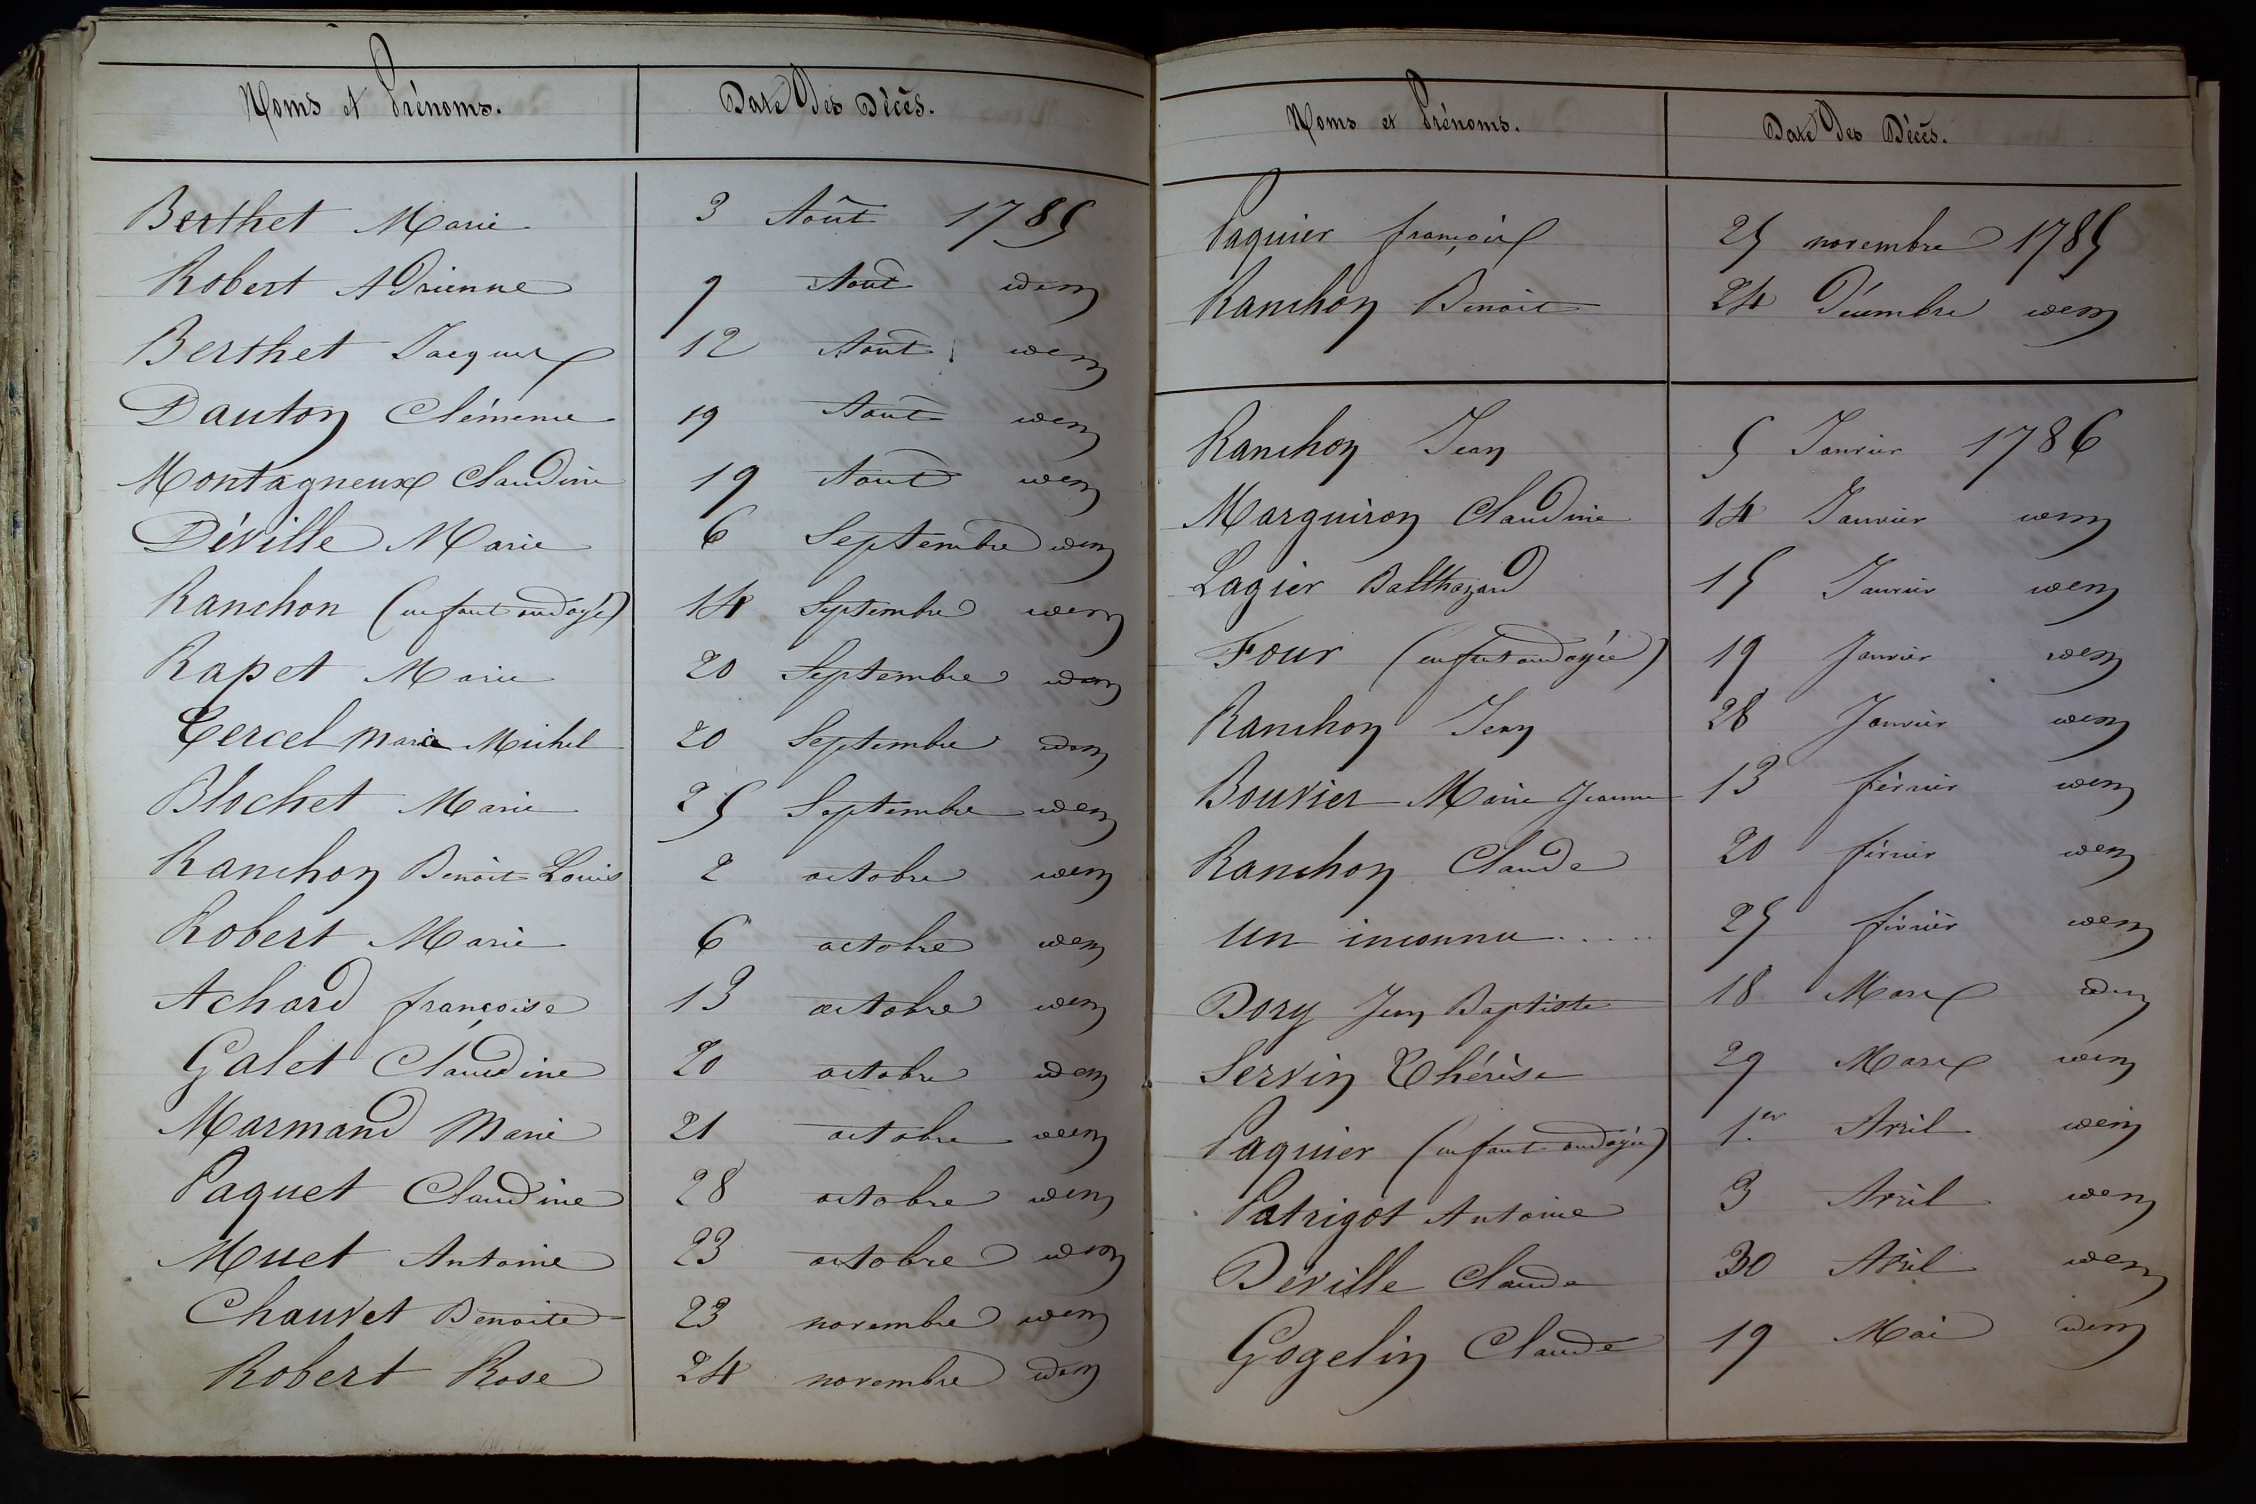 Noms et Prénoms. Date des Décès.
Berthet Marie 3 Août 1785
Robert Adrienne 9 Août idem
Berthet Jacques 12 Août idem
Dauton Clémence 19 Août idem
Montagneux Claudine 19 Août idem
Déville Marie 6 Septembre idem
Ranchon (enfant ondoyé) 14 Septembre idem
Rapet Marie 20 Septembre idem
Tercel Marie Michel 20 Septembre idem
Blochet Marie 25 Septembre idem
Ranchon Benoit Louis 2 octobre idem
Robert Marie 6 octobre idem
Achard françoise 13 octobre idem
Galet Claudine 20 octobre idem
Marmand Marie 21 octobre idem
Paquet Claudine 28 octobre idem
Muet Antoine 23 octobre idem
Chauvet Benoite 23 novembre idem
Robert Rose 24 novembre idem
Noms et Prénoms. Date des Décès.
Paquier françois 25 novembre 1785
Ranchon Benoit 24 Décembre idem
Ranchon Jean 5 Janvier 1786
Marguiron Claudine 14 Janvier idem
Lagier Balthazard 15 Janvier idem
Four (enfant ondoyée) 19 Janvier idem
Ranchon Jean 28 Janvier idem
Bouvier Marie Jeanne 13 février idem
Ranchon Claude 20 février idem
Un inconnu..... 25 février idem
Dory Jean Baptiste 18 Mars idem
Servin Thérèse 29 Mars idem
Paquier (enfant ondoyée) 1.er Avril idem
Patrigot Antoine 3 Avril idem
Déville Claude 30 Avril idem
Gogelin Claude 19 Mai idem